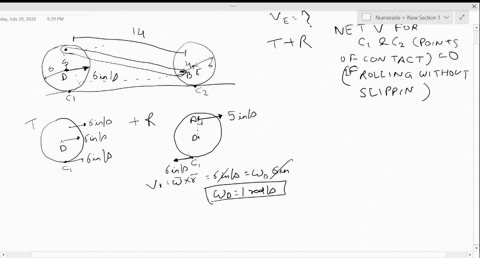 day, July 20, 2020 9:39 PM
Numerade > New Section 1
14
6
6 in/s
D
B
E
6
C1
C2
VE = ?
T + R
NET V FOR
C1 & C2 (POINTS
OF CONTACT) = 0
(IF ROLLING WITHOUT
SLIPPIN)
T
6 in/s
D
6 in/s
C1
6 in/s
+ R
A
5 in/s
D
C1
6 in/s
Vr = ω̄ × r̄ = 6 in/s = ωD 6 in
ωD = 1 rad/s